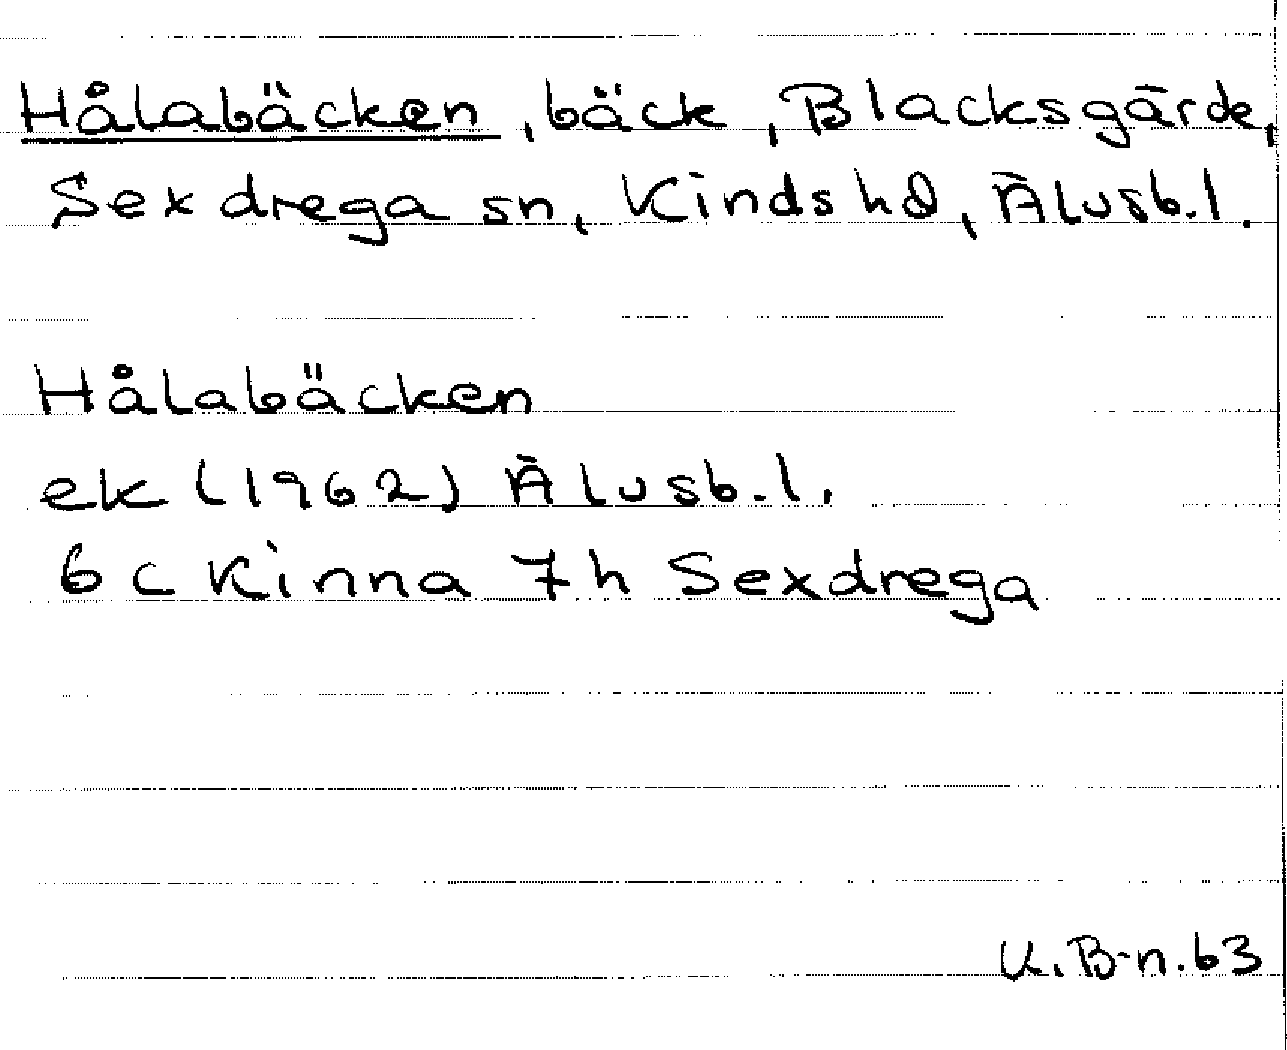 Hålabäcken, bäck, Blacksgärde,
Sexdrega sn, Kinds hd, Älvsb.l.
Hålabäcken
ek (1962) Älvsb.l.
6c Kinna 7h Sexdrega
K.B-n.63